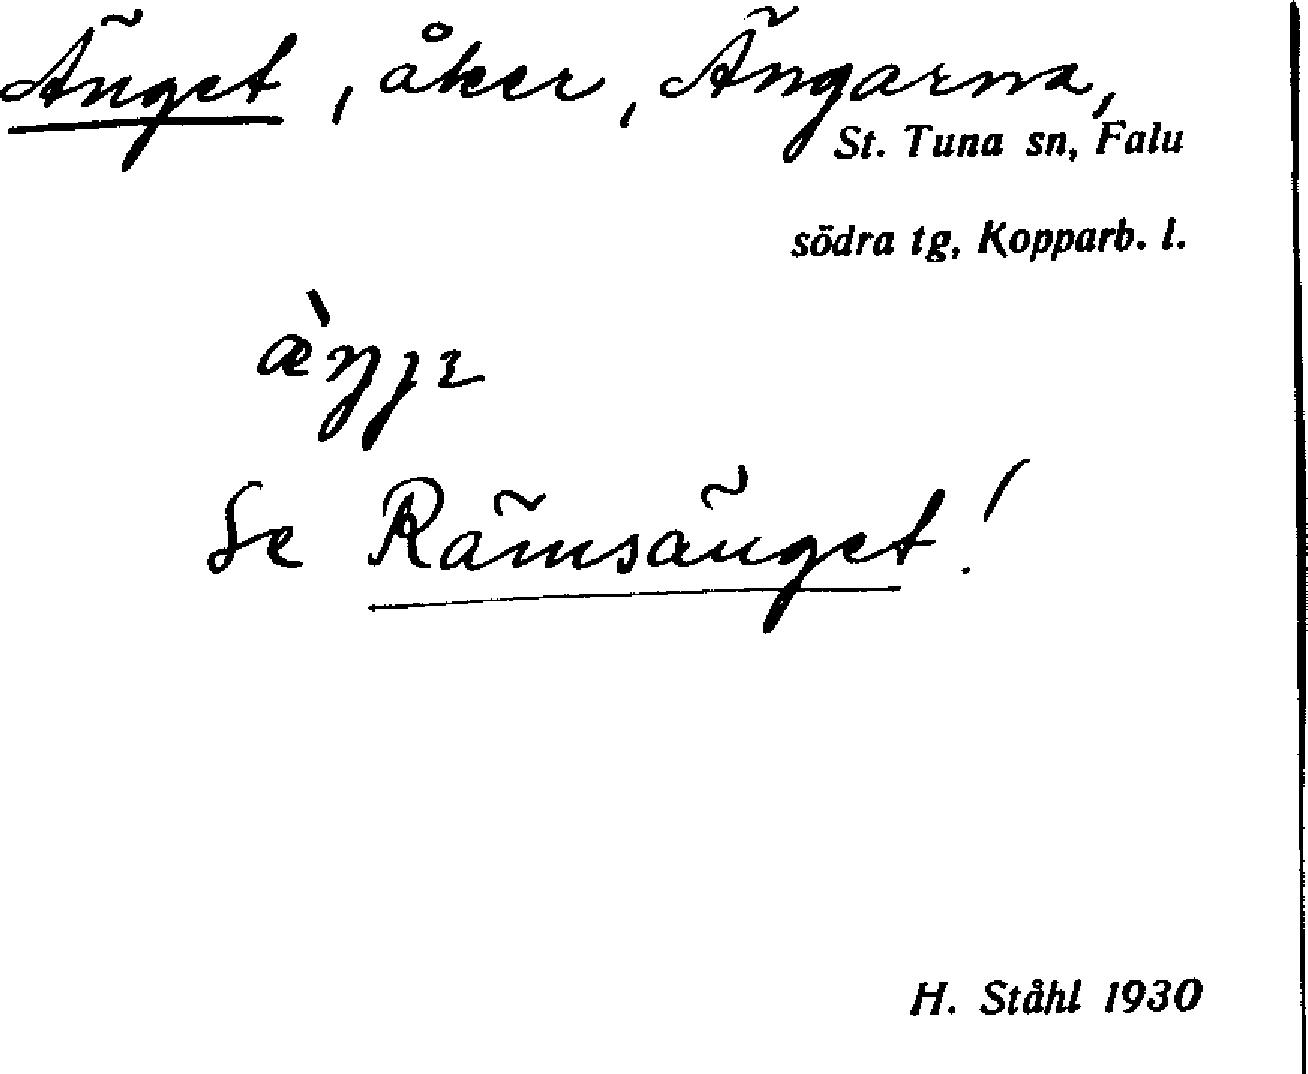 Änget, åker, Ängarna,
St. Tuna sn, Falu
södra tg, Kopparb. l.
Se Rämsänget!
H. Ståhl 1930